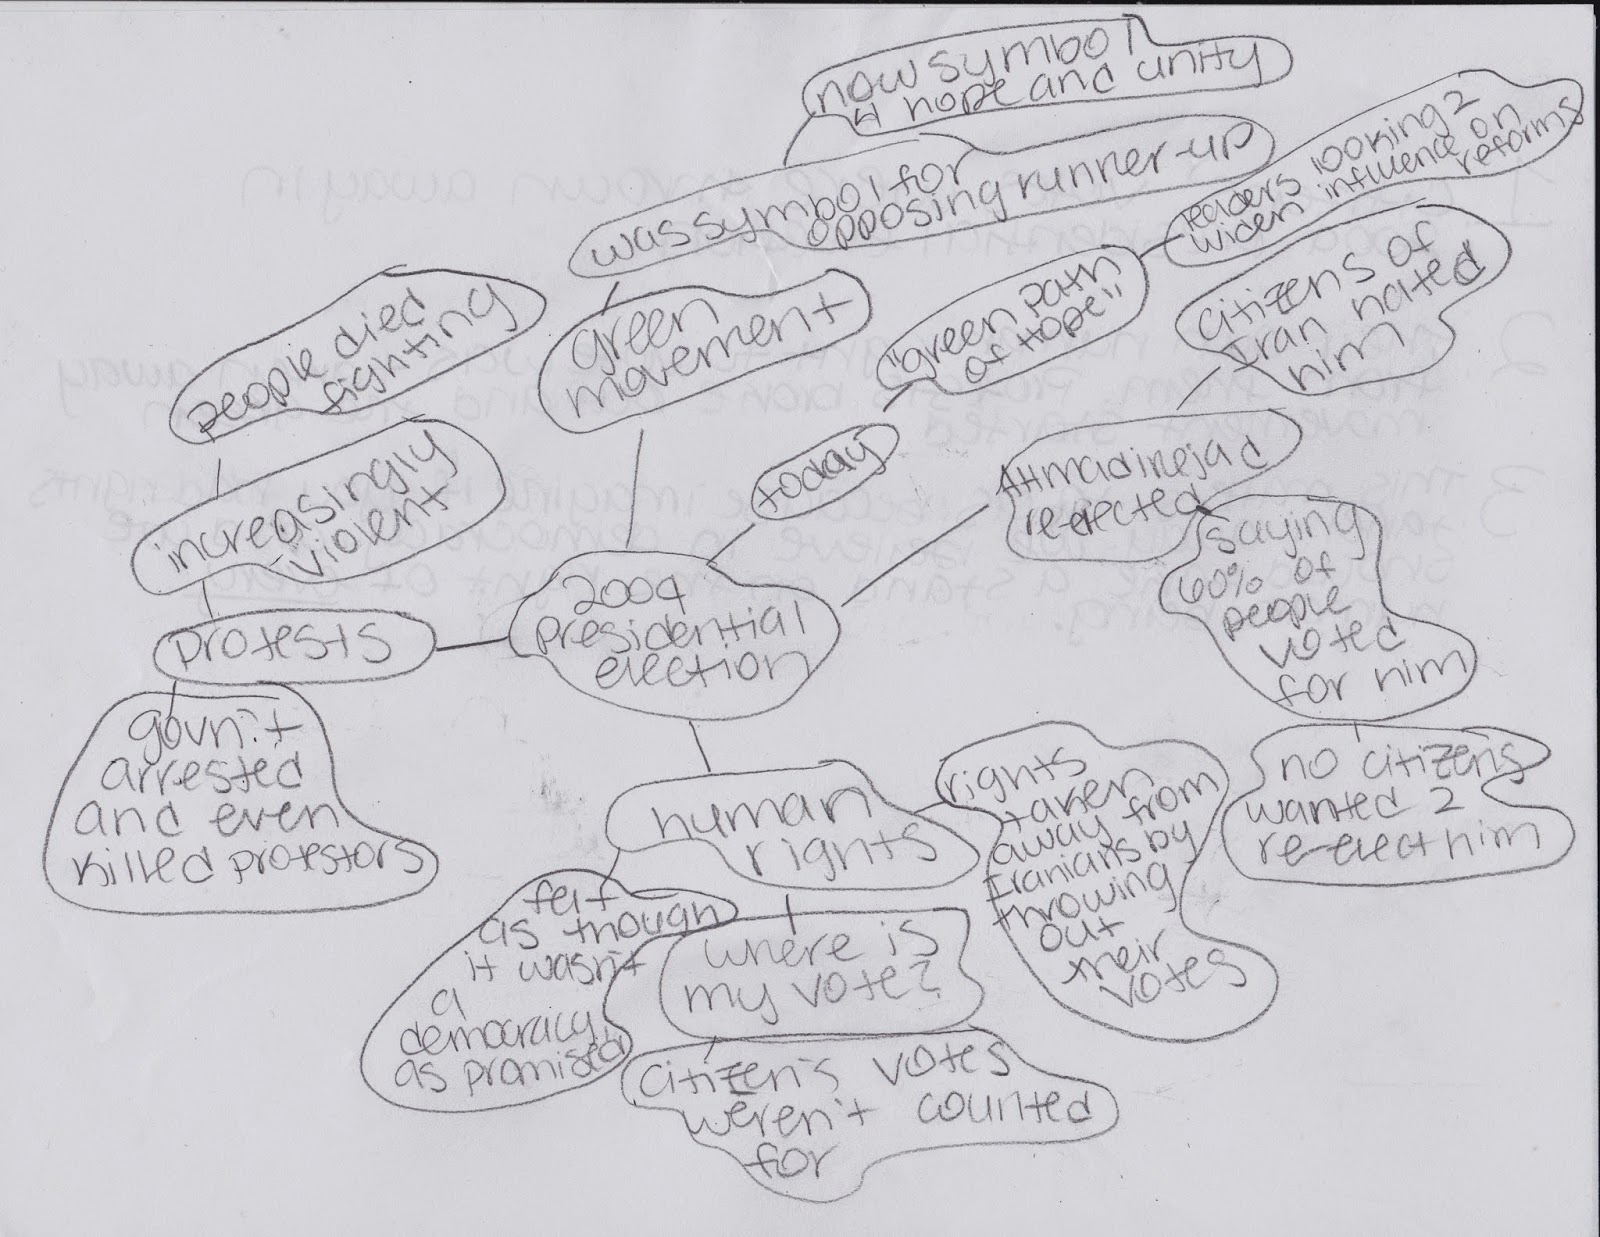 now symbol
4 hope and unity
was symbol for
opposing runner-up
leaders looking 2
widen influence on
reforms
green
movement
"green path
of Hope"
citizens of
Iran hated
him
people died
fighting
increasingly
violent
today
AHmadinejad
re-elected
saying
60% of
people
voted
for him
no citizens
wanted 2
re-elect him
2009
presidential
election
protests
govn't
arrested
and even
killed protestors
human
rights
rights
taken
away from
Iranians by
throwing
out
their
votes
felt
as though
it wasn't
a
democracy,
as promised
where is
my vote?
citizen's votes
weren't counted
for